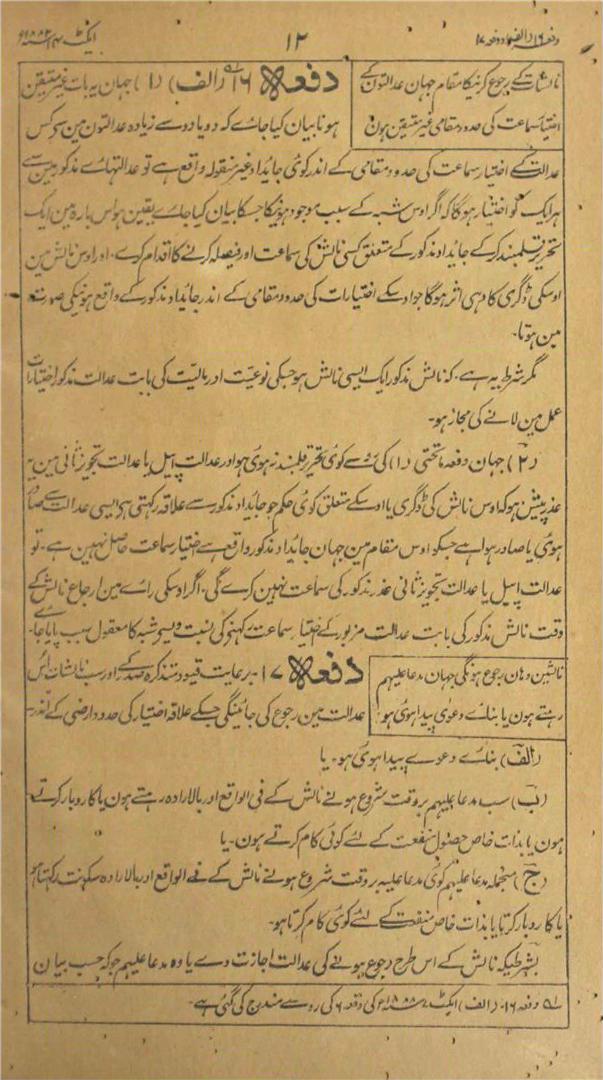 دفعہ ۱۶ (الف) و دفعہ ۱۷
۱۲
ایکٹ ۱۴ ۱۸۸۲ء
نالشات کے رجوع کرنیکا مقام جہان عدالتون کے
اختیار سماعت کی حدود مقامی غیر متیقن ہون
دفعہ ۱۶ (الف) (۱) جہان یہ بات غیر متیقن
ہونا بیان کیا جاے کہ دو یا دو سے زیادہ عدالتون مین سے کس
عدالت کے اختیار سماعت کی حدود مقامی کے اندر کوئی جائداد غیر منقولہ واقع ہے تو عدالتہاے مذکور مین سے
ہر ایک کو اختیار ہوگا کہ اگر اوس شبہ کے سبب موجود ہونیکا جسکا بیان کیا جاے یقین ہو اس بارہ مین ایک
تحریر قلمبند کرکے جائداد مذکور کے متعلق کسی نالش کی سماعت اور فیصلہ کرنے کا اقدام کرے۔ اور اوس نالش مین
اوسکی ڈگری کا وہی اثر ہوگا جو اوسکے اختیارات کی حدود مقامی کے اندر جائداد مذکور کے واقع ہونیکی صورت
مین ہوتا۔
مگر شرط یہ ہے۔ کہ نالش مذکور ایک ایسی نالش ہو جسکی نوعیت اور مالیت کی بابت عدالت مذکور اختیارات
عمل مین لانے کی مجاز ہو۔
(۲) جہان دفعہ ماتحتی (۱) کی رو سے کوئی تحریر قلمبند نہ ہوئی ہو اور عدالت اپیل یا عدالت تجویز ثانی مین یہ
عذر پیش ہو کہ اوس نالش کی ڈگری یا اوسکے متعلق کوئی حکم جو جائداد مذکور سے علاقہ رکھتی ہو ایسی عدالت سے صادر
ہوئی یا صادر ہوا ہے جسکو اوس مقام مین جہان جائداد مذکور واقع ہے اختیار سماعت حاصل نہین ہے۔ تو
عدالت اپیل یا عدالت تجویز ثانی عذر مذکور کی سماعت نہین کرے گی۔ اگر اوسکی راے مین ارجاع نالش کے
وقت نالش مذکور کی بابت عدالت مزبور کے اختیار سماعت رکھنے کی نسبت ویسے شبہ کا معقول سبب پایا جاے۔
نالشین وہان رجوع ہونگی جہان مدعا علیہم
رہتے ہون یا بناے دعوی پیدا ہوئی ہو
دفعہ ۱۷۔ برعایت قیود متذکرہ صدر کے اور سب نالشات اس
عدالت مین رجوع کی جائینگی جسکے علاقہ اختیار کی حدود ارضی کے اندر۔
(الف) بناے دعوے پیدا ہوئی ہو۔ یا
(ب) سب مدعا علیہم بروقت شروع ہونے نالش کے فی الواقع اور بالارادہ رہتے ہون یا کاروبار کرتے
ہون یا بذات خاص حصول منفعت کے لئے کوئی کام کرتے ہون۔ یا
(ج) منجملہ مدعا علیہم کوئی مدعا علیہ بروقت شروع ہونے نالش کے فے الواقع اور بالارادہ سکونت رکھتا ہو
یا کاروبار کرتا یا بذات خاص منفعت کے لئے کوئی کام کرتا ہو۔
بشرطیکہ نالش کے اس طرح رجوع ہونے کی عدالت اجازت دے یا وہ مدعا علیہم جو کہ حسب بیان
دفعہ ۱۶۔ (الف) ایکٹ ۱۸۸۸ء کی دفعہ ۶ کی رو سے مندرج کی گئی ہے۔